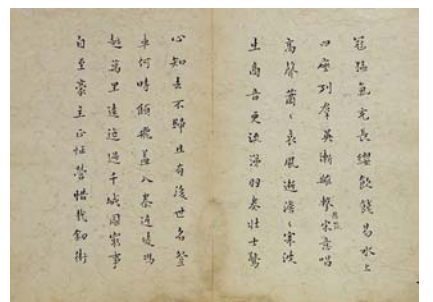 冠猛氣充長纓飲餞易水上
四座列羣英漸離擊悲筑宋意唱
高聲蕭〻哀風逝澹〻寒波
生商音更流涕羽奏壯士驚
心知去不歸且有後世名登
車何時顧飛蓋入秦庭凌厲
越萬里逶迤過千城圖窮事
自至豪主正怔營惜哉劍術